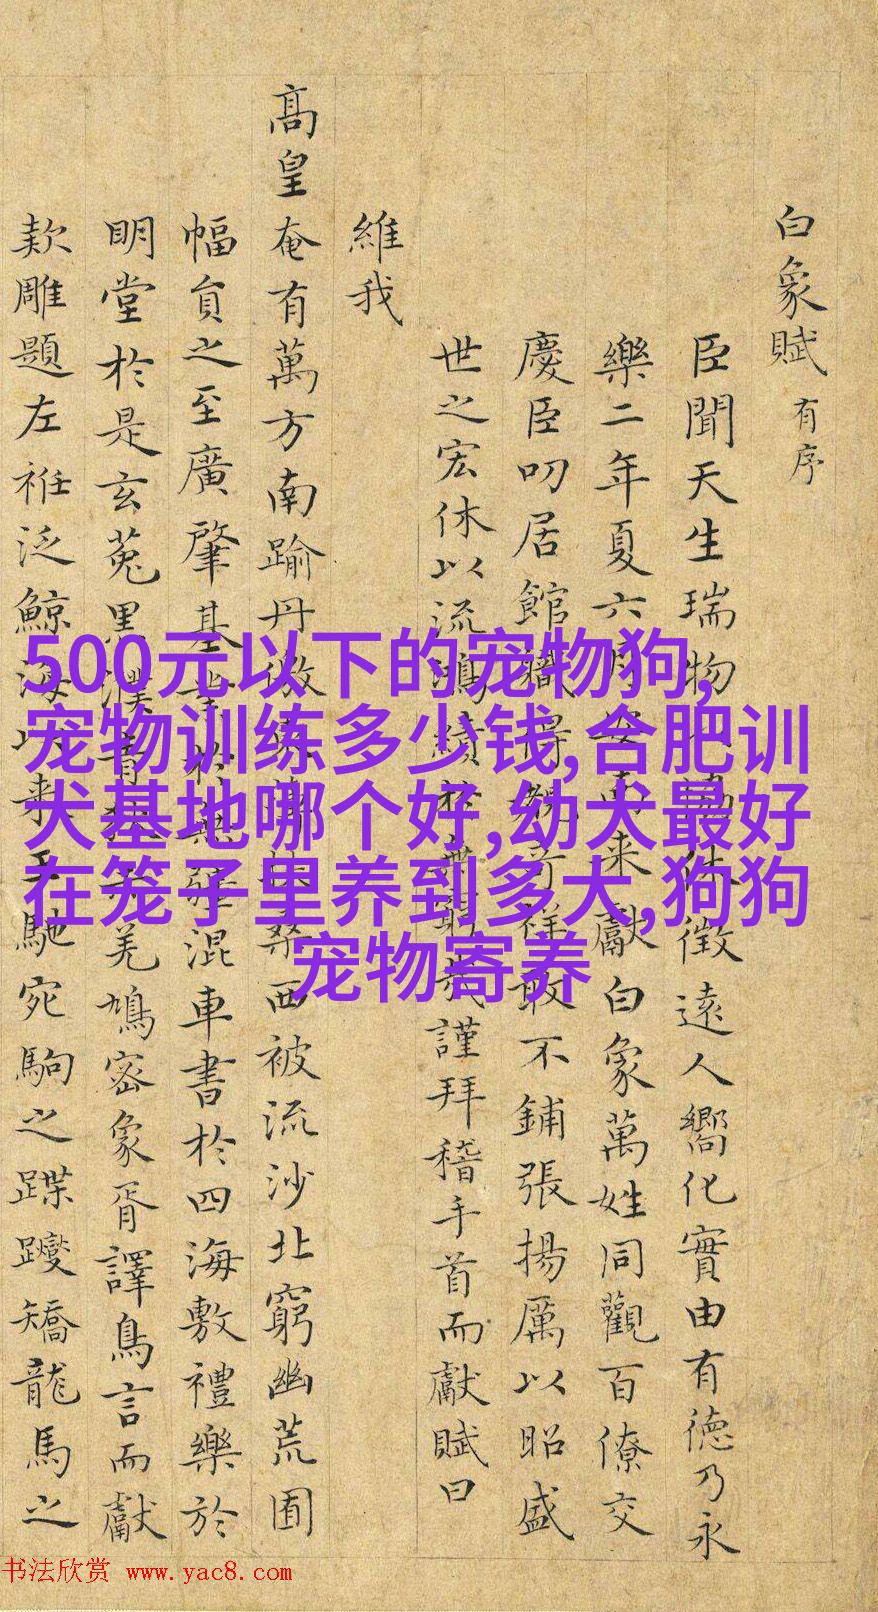 白象賦 有序
臣聞天生瑞物
徵遠人嚮化實由有德乃永
樂二年夏六
來獻白象萬姓同觀百僚交
慶臣叨居館職
敢不鋪張揚厲以昭盛
世之宏休以流鴻績於無窮哉謹拜稽手首而獻賦曰
維我
髙皇奄有萬方南踰丹徼
西被流沙北窮幽荒圃
幅員之至廣肇基
混車書於四海敷禮樂於
明堂於是玄菟黑濮
羌鳩宻象胥譯鳥言而獻
欵雕題左袵泛鯨海以來王馳宛駒之蹀躞矯龍馬之
500元以下的宠物狗,
宠物训练多少钱,合肥训
犬基地哪个好,幼犬最好
在笼子里养到多大,狗狗
宠物寄养
书法欣赏 www.yac8.com